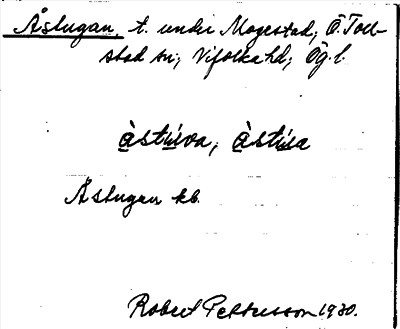 Åstugan, t. under Mogestad, Ö. Toll-
stad sn; Vifolka hd; Ög. l.
àstúva, àstúa
Åstugan kb.
Robert Pettersson 1930.